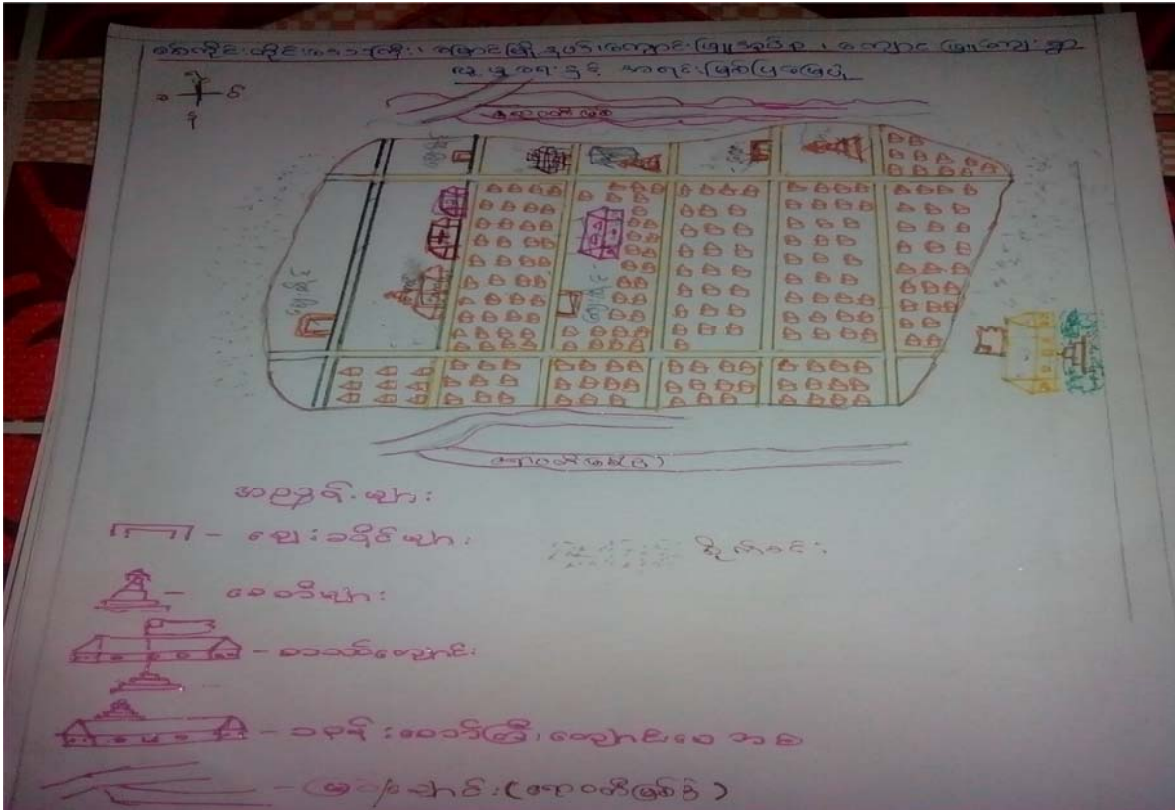 စစ်ကိုင်းတိုင်းဒေသကြီး၊ မြို့နယ်၊ ကျောင်းဖြူအုပ်စု၊ ကျောင်းဖြူကျေးရွာ
လူမှုရေးနှင့် အရင်းအမြစ်ပြမြေပုံ
ဧရာဝတီမြစ်
ဈေးဆိုင်
ဈေးဆိုင်
ဈေးဆိုင်
ဧရာဝတီမြစ်(ခွဲ)
အညွှန်းများ
- ဈေးဆိုင်များ
စိုက်ခင်း
- စေတီများ
- စာသင်ကျောင်း
- ဘုန်းတော်ကြီးကျောင်း
- မြစ်/ချောင်း (ဧရာဝတီမြစ်ခွဲ)